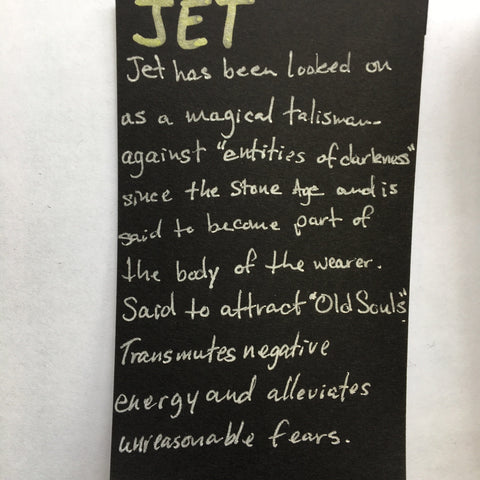 JET
Jet has been looked on
as a magical talisman
against "entities of darkness"
since the Stone Age and is
said to become part of
the body of the wearer.
Said to attract "Old Souls".
Transmutes negative
energy and alleviates
unreasonable fears.